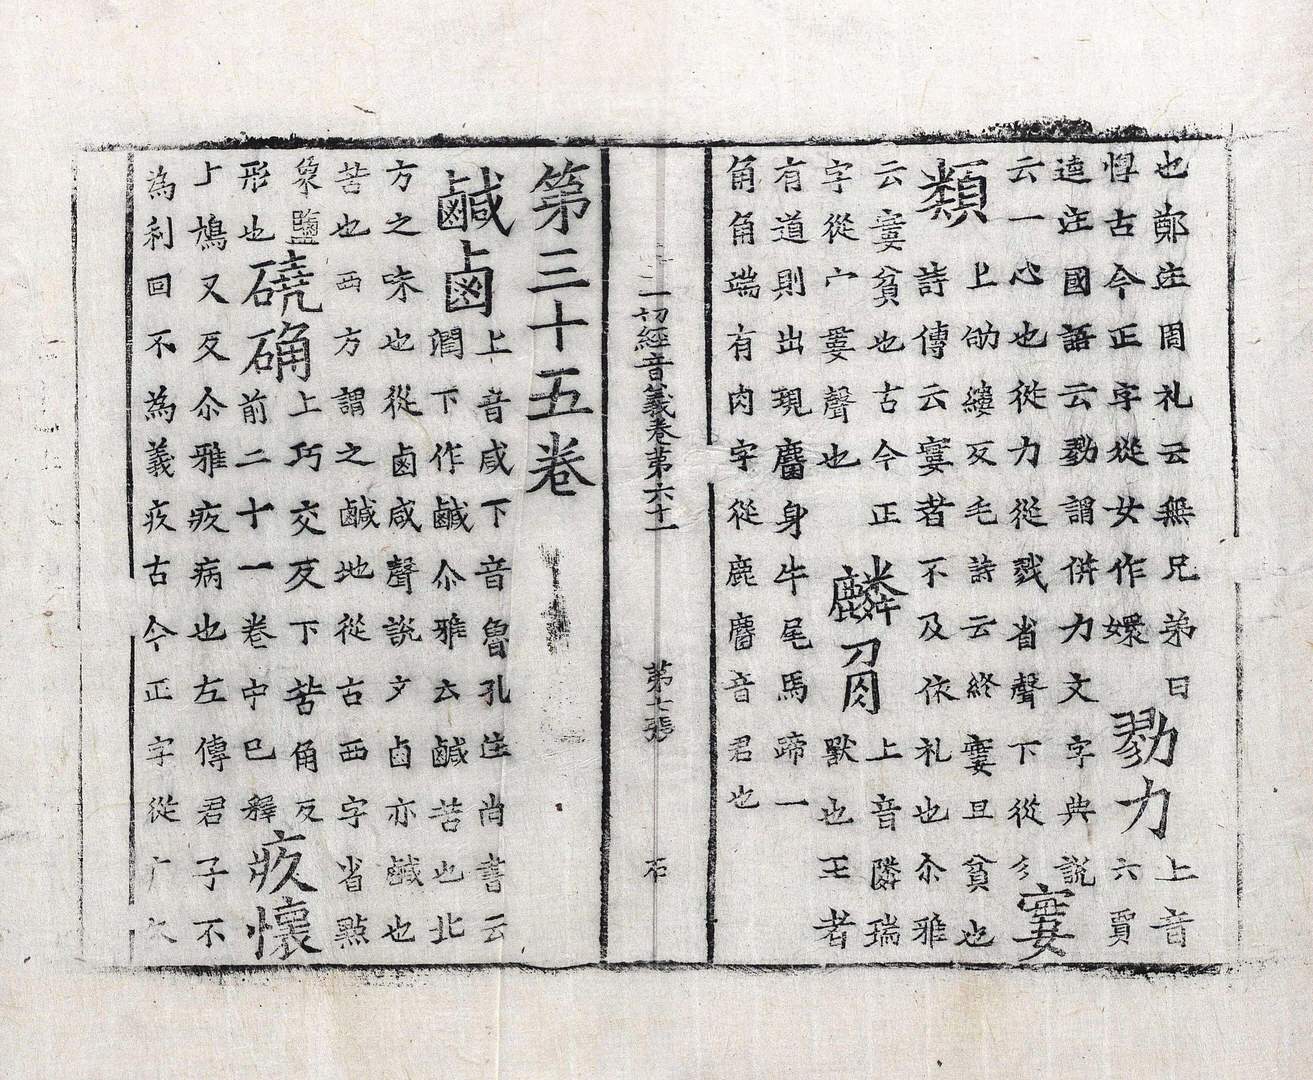 也鄭注周礼云無兄弟曰
惸古今正字從女作嬛
勠力
上音
六賈
逵注國語云勠謂併力文字典説
云一心也從力從戮省聲下從彡
窶
類
上劬縷反毛詩云終窶且貧也
詩傳云窶者不及依礼也尒雅
云窶貧也古今正
字從宀婁聲也
麟角
上音隣瑞
獸也王者
有道則出現麕身牛尾馬蹄一
角角端有肉字從鹿麕音君也
一切經音義卷第六十一 第七張 石
第三十五卷
鹹鹵
上音咸下音魯孔注尚書云
澗下作鹹尒雅云鹹苦也北
方之味也從鹵咸聲説文卤亦鹹也
苦也西方謂之鹹地從古西字省㸃
象鹽
形也
磽确
上巧交反下苦角反
前二十一卷中已釋
疚懷
上鳩又反尒雅疚病也左傳君子不
為利回不為義疚古今正字從疒久